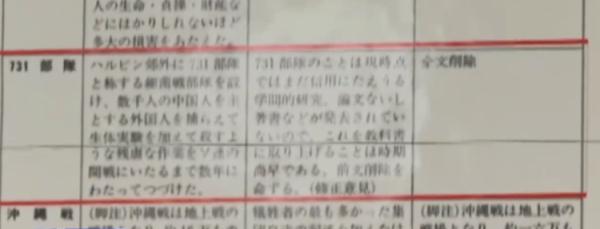 人の生命・貞操・財産な
どにはかりしれないほど
多大の損害をあたえた。
731 部 隊
ハルビン郊外に731部隊
と称する細菌戦部隊を設
け、数千人の中国人を主
とする外国人を捕らえて
生体実験を加えて殺すよ
うな残虐な作業をソ連の
開戦にいたるまで数年に
わたってつづけた。
731部隊のことは現時点
ではまだ信用にたえうる
学問的研究、論文ないし
著書などが発表されてい
ないので、これを教科書
に取り上げることは時期
尚早である。全文削除を
命ずる。(修正意見)
全文削除
沖 縄 戦
(脚注)沖縄戦は地上戦の
犠牲者の最も多かった集
(脚注)沖縄戦は地上戦の